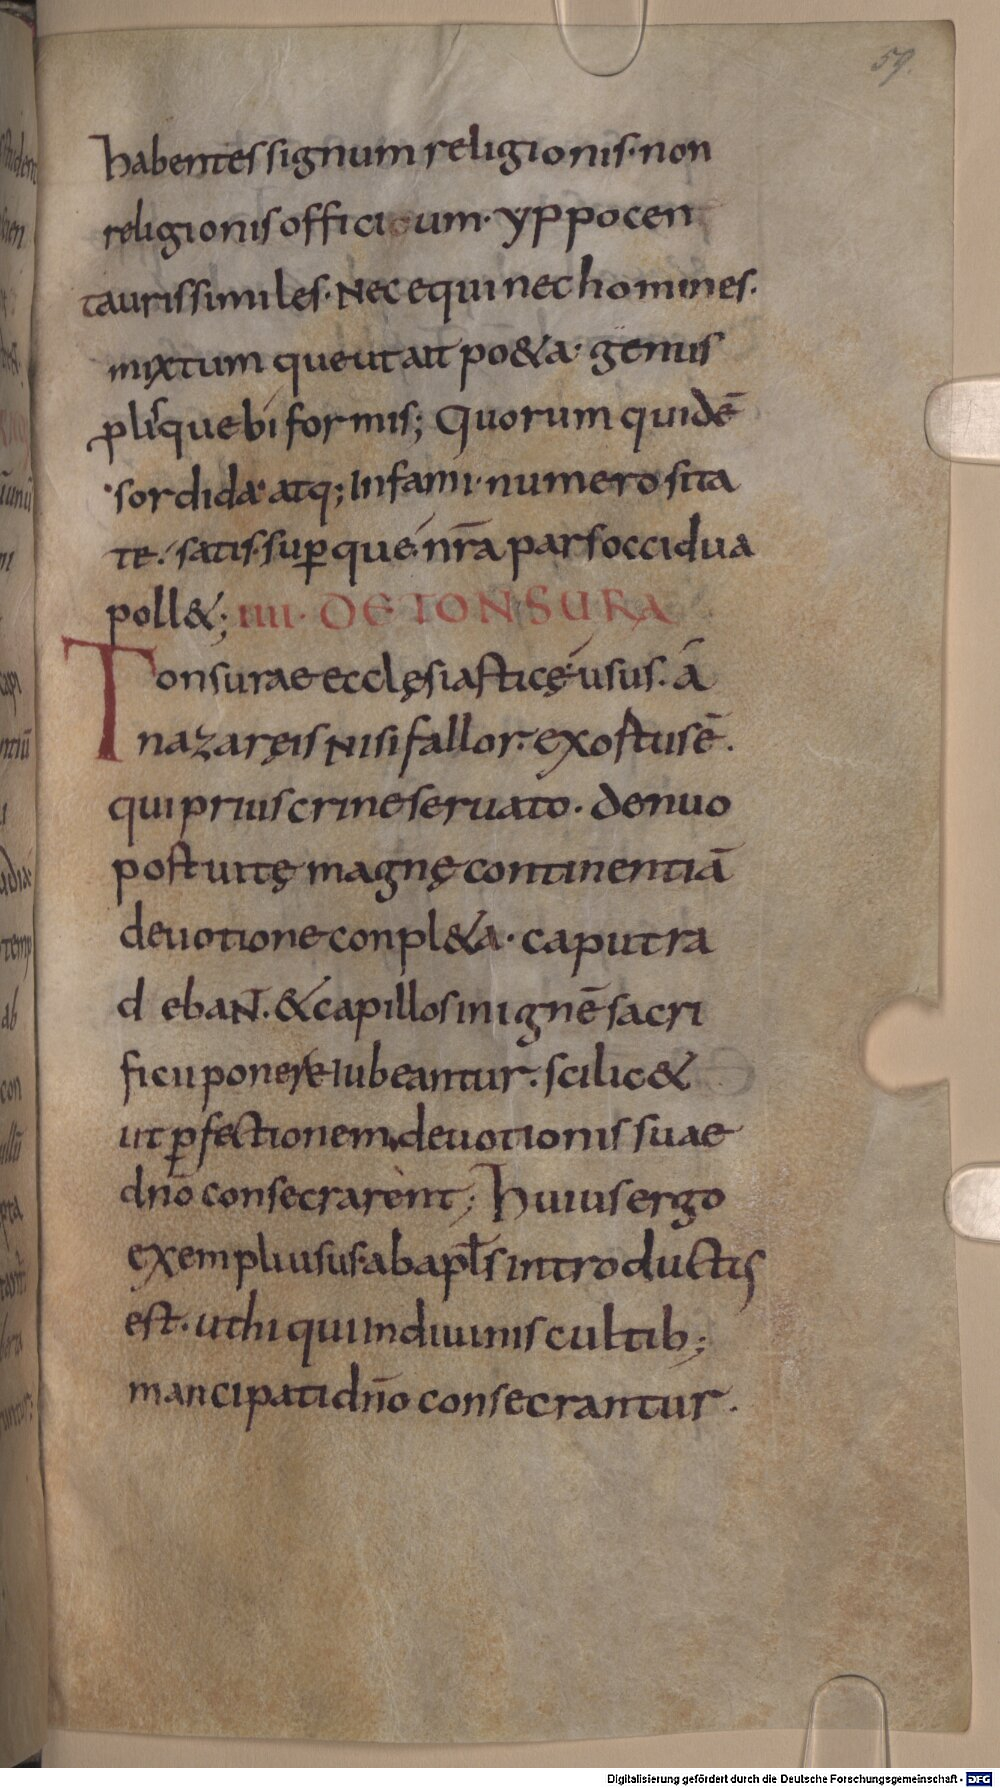 59.
habentes signum religionis· non
religionis officium· yppocen
taurissimiles· Nec equi nec homines·
mixtum que ut ait po&a· genus
pliꝰque biformis; Quorum quidē
sordida atq; Infami· numerosita
te· satis· suꝑque nr̄a pars occidua
poll&; IIII· DE TONSURA
Tonsurae ecclęsiasticę usus· á
nazaręis Nisi fallor· exostus ē·
qui prius crine seruato· denuo
post uitę magnę continentiā
deuotione conpl&a· caput ra
debaNT· & capillos in ignē sacri
ficii ponere Iubeantur· scilic&
ut ꝑfectionem deuotionis suae
dn̄o consecrarent; Huius ergo
exempli usus· ab apl̄s introductis
est· ut hi qui In diuinis cultib;
mancipati dn̄o consecrantur·
Digitalisierung gefördert durch die Deutsche Forschungsgemeinschaft - DFG